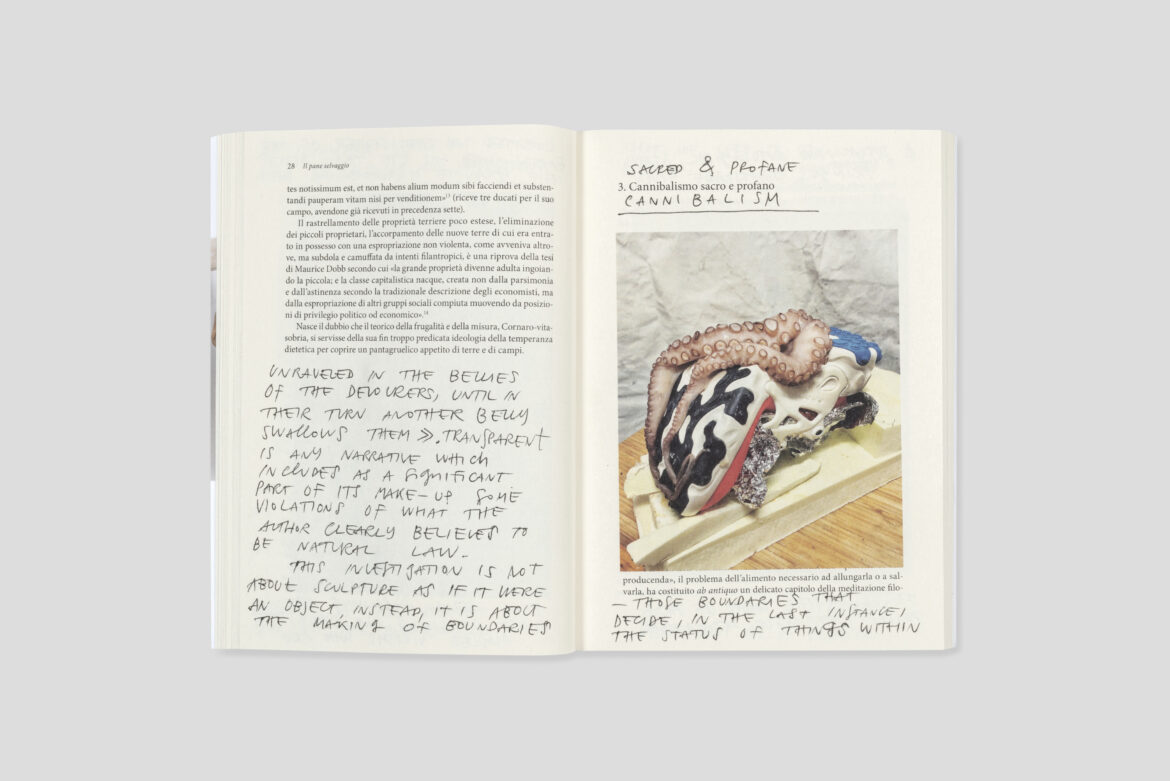 28 Il pane selvaggio
tes notissimum est, et non habens alium modum sibi facciendi et substen-
tandi pauperam vitam nisi per venditionem»13 (riceve tre ducati per il suo
campo, avendone già ricevuti in precedenza sette).
Il rastrellamento delle proprietà terriere poco estese, l'eliminazione
dei piccoli proprietari, l'accorpamento delle nuove terre di cui era entra-
to in possesso con una espropriazione non violenta, come avveniva altro-
ve, ma subdola e camuffata da intenti filantropici, è una riprova della tesi
di Maurice Dobb secondo cui «la grande proprietà divenne adulta ingoian-
do la piccola; e la classe capitalistica nacque, creata non dalla parsimonia
e dall'astinenza secondo la tradizionale descrizione degli economisti, ma
dalla espropriazione di altri gruppi sociali compiuta muovendo da posizio-
ni di privilegio politico od economico».14
Nasce il dubbio che il teorico della frugalità e della misura, Cornaro-vita-
sobria, si servisse della sua fin troppo predicata ideologia della temperanza
dietetica per coprire un pantagruelico appetito di terre e di campi.
UNRAVELED IN THE BELLIES
OF THE DEVOURERS, UNTIL IN
THEIR TURN ANOTHER BELLY
SWALLOWS THEM ». TRANSPARENT
IS ANY NARRATIVE WHICH
INCLUDES AS A SIGNIFICANT
PART OF ITS MAKE-UP SOME
VIOLATIONS OF WHAT THE
AUTHOR CLEARLY BELIEVES TO
BE NATURAL LAW -
THIS INVESTIGATION IS NOT
ABOUT SCULPTURE AS IF IT WERE
AN OBJECT, INSTEAD, IT IS ABOUT
THE MAKING OF BOUNDARIES
SACRED & PROFANE
3. Cannibalismo sacro e profano
CANNIBALISM
producenda», il problema dell'alimento necessario ad allungarla o a sal-
varla, ha costituito ab antiquo un delicato capitolo della meditazione filo-
— THOSE BOUNDARIES THAT
DECIDE, IN THE LAST INSTANCE,
THE STATUS OF THINGS WITHIN